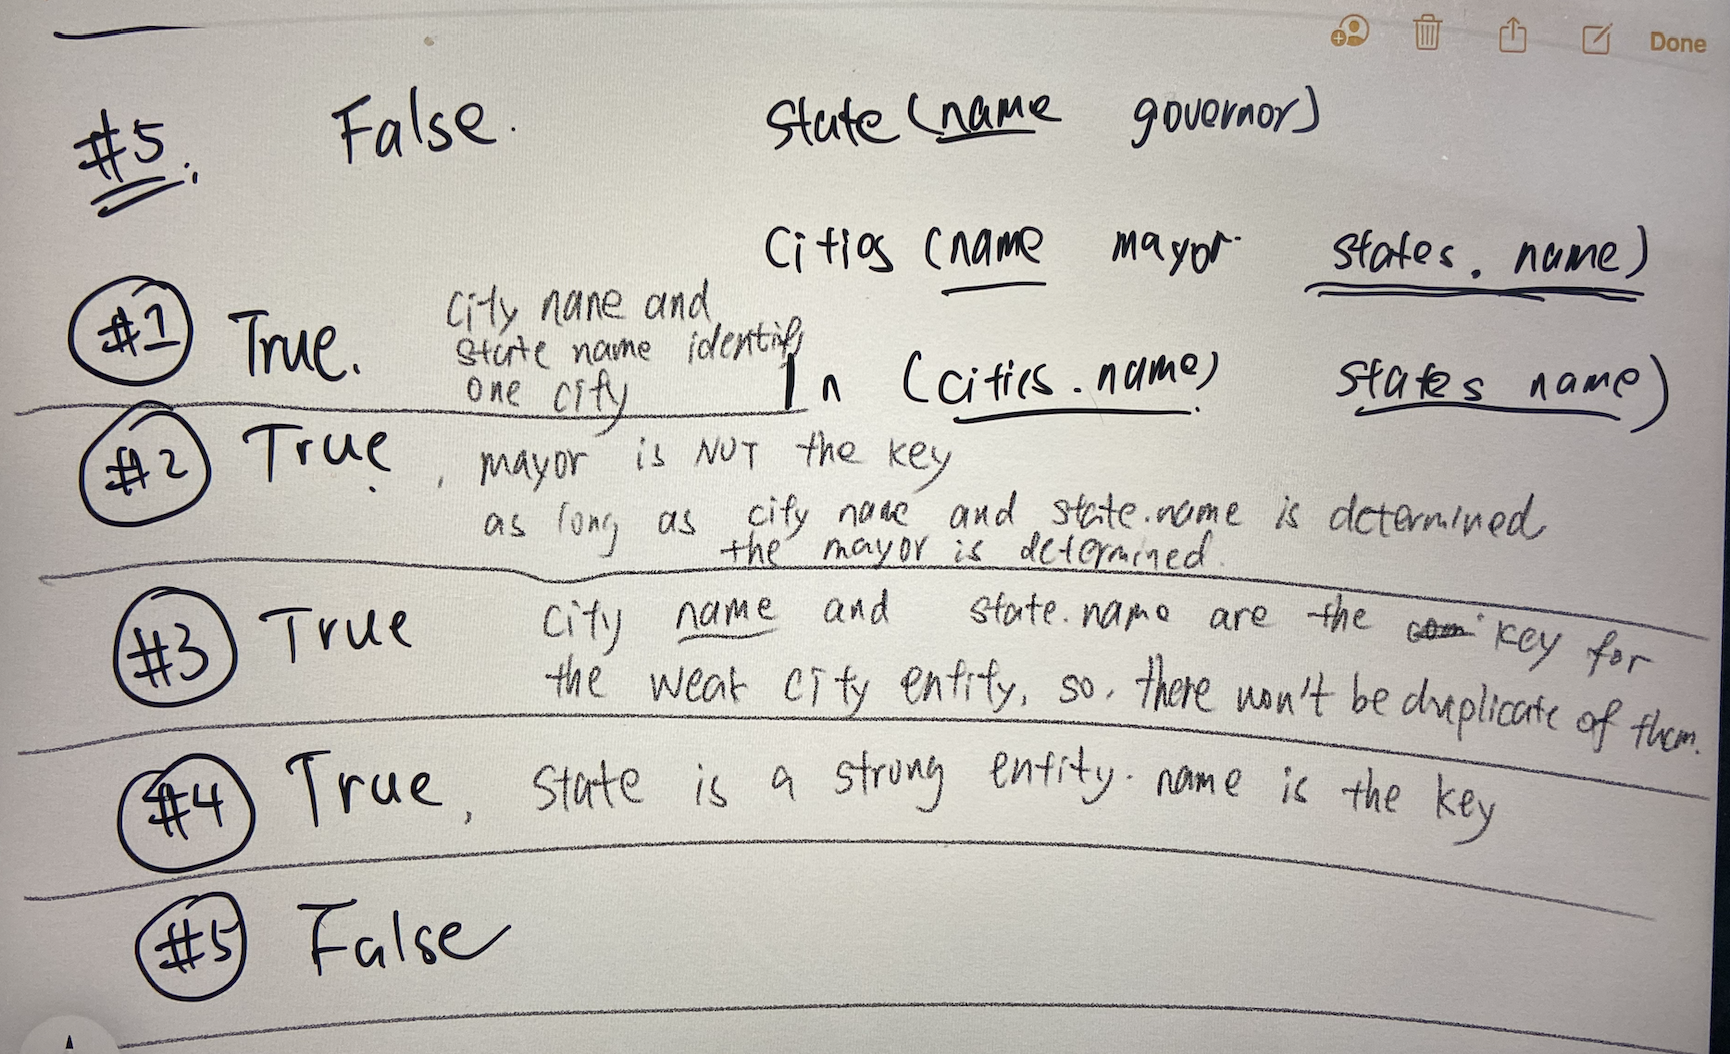 Done
#5. False. State (name governor)
Cities (name mayor states. name)
#1 True. City name and
state name identify
one city
In (cities. name) states name)
#2 True, mayor is NOT the key
as long as city name and state.name is determined
the mayor is determined.
#3 True city name and state. name are the key for
the weak city entity, so, there won't be duplicate of them.
#4 True, state is a strong entity. name is the key
#5 False